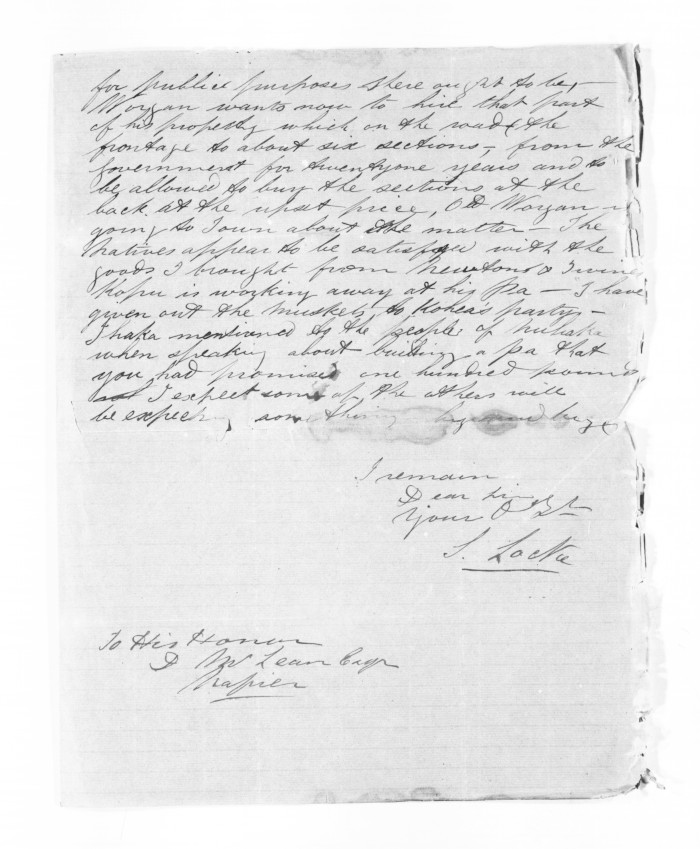 for public purposes there ought to be, -
Worgan wants now to hire that part
of his property which on the road & the
frontage to about six sections, from the
Government for twentyone years and to
be allowed to buy the sections at the
back at the upset price, Old Worgan is
going to Town about the matter - The
Natives appear to be satisfyee with the
goods I brought from Newtons & Irvine
Kopu is working away at his Pa - I have
given out the muskets to Kohea's party -
Ihaka mentioned to the people of nuhaka
when speaking about building a pa that
you had promised one hundred pounds
I expect some of the others will
be expect, something
I remain
Dear Sir
Your
S. Locke
To His Honor
D McLean Esqr
Napier